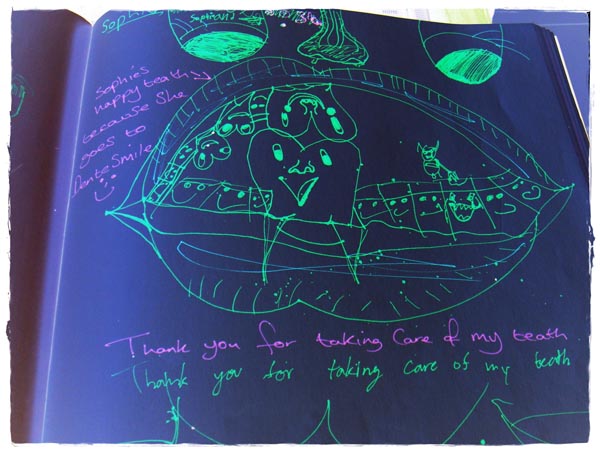 Sophie
sophie's
happy teath
because she
goes to
Dentesmile
Thank you for taking care of my teath
Thank you for taking care of my teath